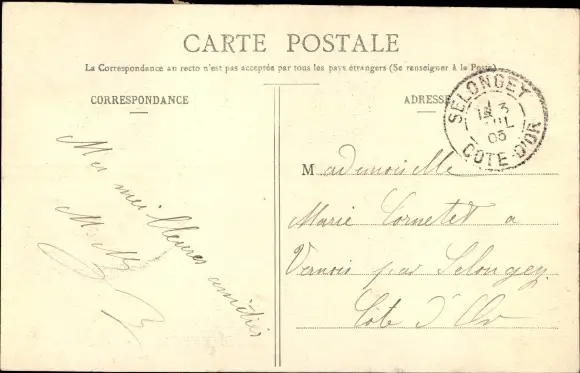 CARTE POSTALE
La Correspondance au recto n'est pas acceptée par tous les pays étrangers (Se renseigner à la Poste)
CORRESPONDANCE
ADRESSE
SELONGEY
3
JUIL
05
COTE-D'OR
Mes meilleures amitiés
Mademoiselle
Marie Cornetet a
Vernois par Selongey
Côte d'Or